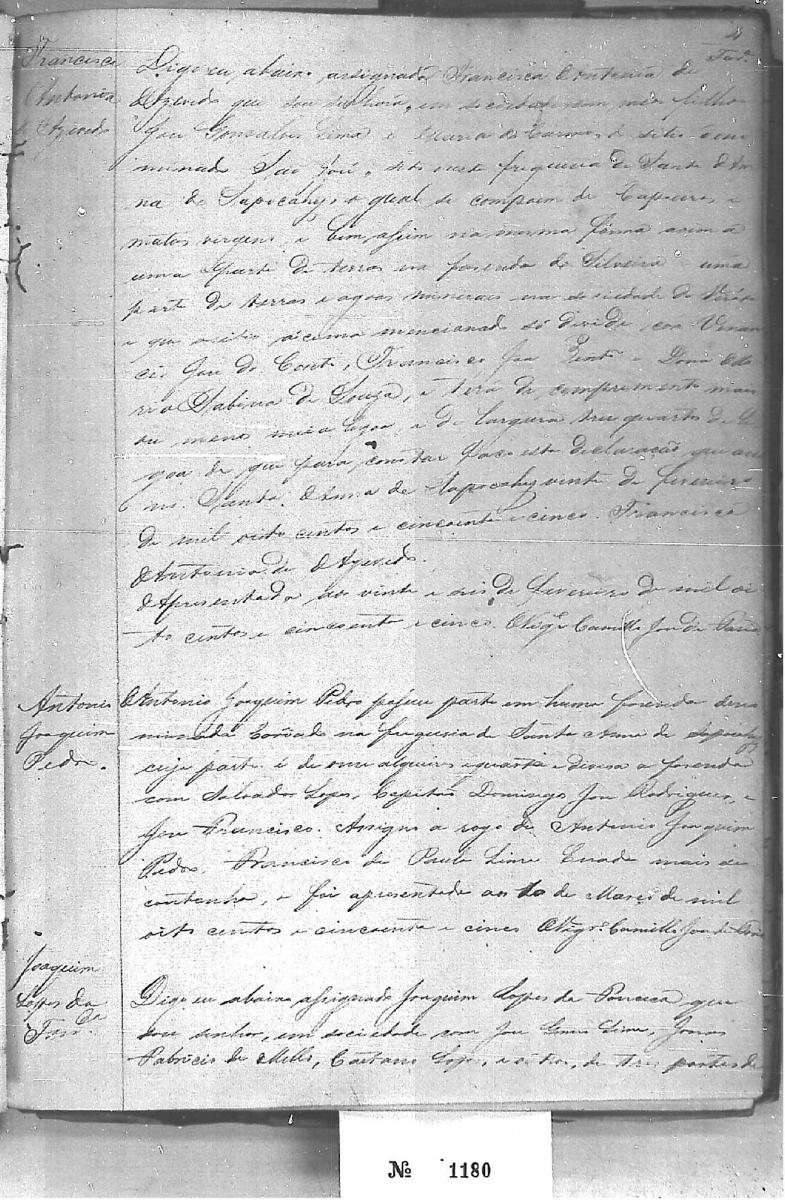 Francisca
Antonia
de Azevedo
Digo eu abaixo assignada Francisca Antonia de
Azevedo que sou senhora, em sociedade com meos filhos
José Gonsalves Lima e Maria do Carmo, do sitio deno
minado São José, sito nesta freguesia de Santa An
na do Sapocahy, o qual se compoem de Capoeiras e
matos virgens, e bem assim na mesma fórma
uma parte de terras na fazenda do Silveira uma
parte de terras e agoas mineraes na sociedade do
e que o sitio acima mencionado se divide com Venan
cio José do Couto, Francisco José Pinto e Dona Ma
ria Sabina de Souza, e terá de comprimento mais
ou menos meia legoa, e de largura tres quartos de le
goa do que para constar faço esta declaração que
Santa Anna de Sapocahy vinte de fevereiro
de mil oito centos e cincoenta e cinco. Francisca
Antonia de Azevedo.
Apresentada aos vinte e seis de fevereiro de mil oi
to centos e cincoenta e cinco. O Vigr.º Camillo José de Faria
Antonio
Joaquim
Pedro.
Antonio Joaquim Pedro possue parte em huma fazenda deno
minada na freguesia de Santa Anna de Sapocahy
cuja parte é de onze alqueires e quarta e divisa a fazenda
com Salvador Lopes, Capitão Domingos José Rodrigues, e
José Francisco. Assigno a rogo de Antonio Joaquim
Pedro. Francisco de Paula Lima E nada mais se
continha, e foi apresentada aos 10 de Março de mil
oito centos e cincoenta e cinco O Vigr.º Camillo José de Faria
Joaquim
Lopes da
Fon.ca
Digo eu abaixo assignado Joaquim Lopes da Fonceca que
sou senhor, em sociedade com José Lima, Jonas
Fabricio de Mello, Caetano Lopes, e outros, de tres partes de
Nº 1180